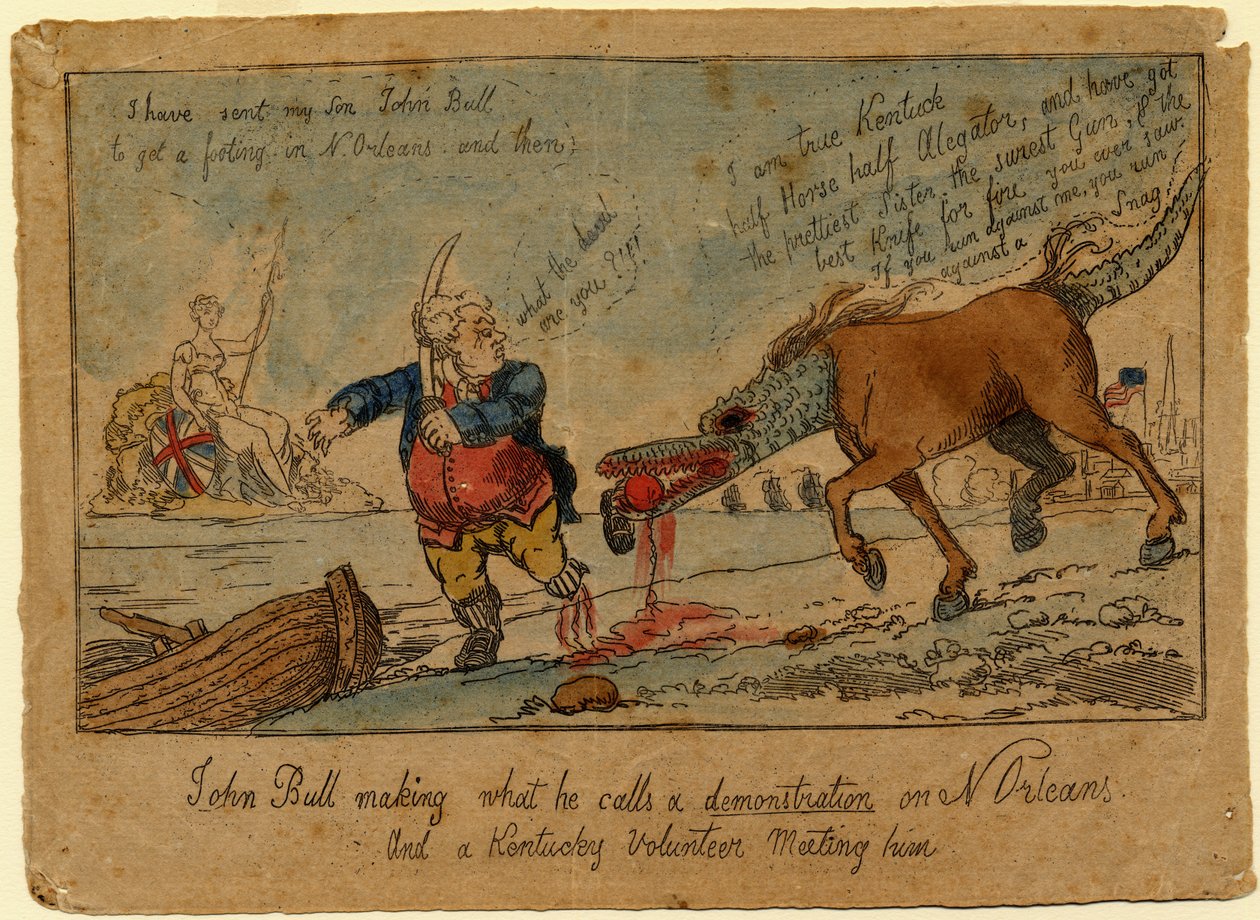 I have sent my Son John Bull
to get a footing in N. Orleans and then;
what the devil
are you ?!!!
I am true Kentuck
half Horse half Alegator, and have got
the prettiest Sister the surest Gun, & the
best Knife for fire you ever saw.
If you run against me, you run
against a Snag
John Bull making what he calls a demonstration on N Orleans.
And a Kentucky Volunteer Meeting him